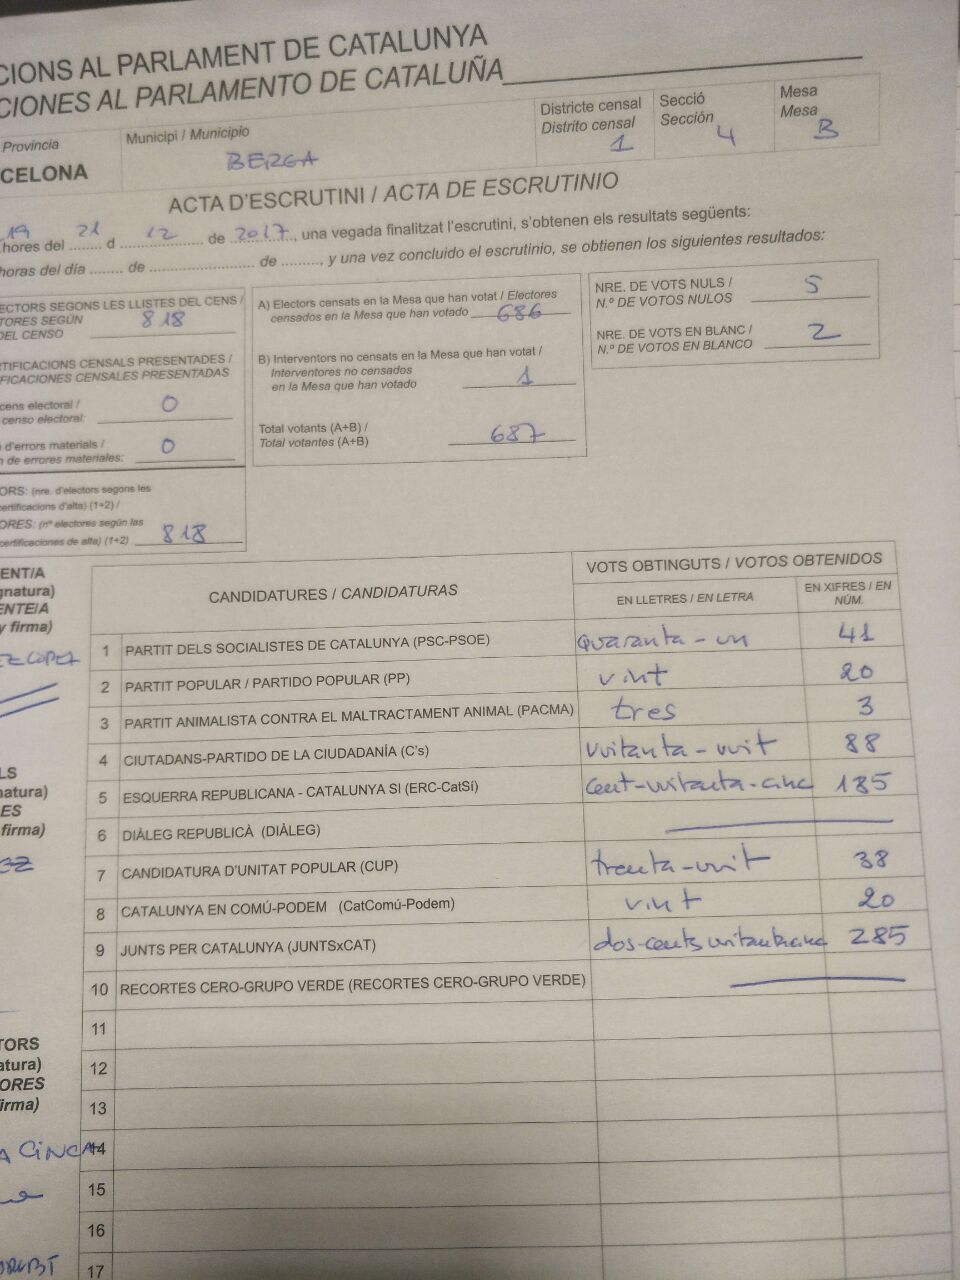 CIONS AL PARLAMENT DE CATALUNYA
CIONES AL PARLAMENTO DE CATALUÑA
Provincia
CELONA
Municipi / Municipio
BERGA
Districte censal
Distrito censal
1
Secció
Sección
4
Mesa
Mesa
B
ACTA D'ESCRUTINI / ACTA DE ESCRUTINIO
19 hores del 21 d 12 de 2017, una vegada finalitzat l'escrutini, s'obtenen els resultats següents:
horas del día ........ de ........................... de .........., y una vez concluido el escrutinio, se obtienen los siguientes resultados:
ECTORS SEGONS LES LLISTES DEL CENS /
TORES SEGÚN
DEL CENSO 818
TIFICACIONS CENSALS PRESENTADES /
IFICACIONES CENSALES PRESENTADAS
cens electoral /
censo electoral: 0
d'errors materials /
n de errores materiales: 0
ORS: (nre. d'electors segons les
certificacions d'alta) (1+2) /
ORES: (nº electores según las
certificaciones de alta) (1+2) 818
A) Electors censats en la Mesa que han votat / Electores
censados en la Mesa que han votado 686
B) Interventors no censats en la Mesa que han votat /
Interventores no censados
en la Mesa que han votado 1
Total votants (A+B) /
Total votantes (A+B) 687
NRE. DE VOTS NULS /
N.º DE VOTOS NULOS 5
NRE. DE VOTS EN BLANC /
N.º DE VOTOS EN BLANCO 2
ENT/A
gnatura)
ENTE/A
y firma)
LS
natura)
ES
firma)
TORS
atura)
ORES
firma)
CANDIDATURES / CANDIDATURAS
VOTS OBTINGUTS / VOTOS OBTENIDOS
EN LLETRES / EN LETRA
EN XIFRES / EN NÚM.
1 PARTIT DELS SOCIALISTES DE CATALUNYA (PSC-PSOE) Quaranta-un 41
2 PARTIT POPULAR / PARTIDO POPULAR (PP) vint 20
3 PARTIT ANIMALISTA CONTRA EL MALTRACTAMENT ANIMAL (PACMA) tres 3
4 CIUTADANS-PARTIDO DE LA CIUDADANÍA (C's) vuitanta-vuit 88
5 ESQUERRA REPUBLICANA - CATALUNYA SI (ERC-CatSí) Cent-vuitanta-cinc 185
6 DIÀLEG REPUBLICÀ (DIÀLEG)
7 CANDIDATURA D'UNITAT POPULAR (CUP) trenta-vuit 38
8 CATALUNYA EN COMÚ-PODEM (CatComú-Podem) vint 20
9 JUNTS PER CATALUNYA (JUNTSxCAT) dos-cents vuitanta-cinc 285
10 RECORTES CERO-GRUPO VERDE (RECORTES CERO-GRUPO VERDE)
11
12
13
14
15
16
17